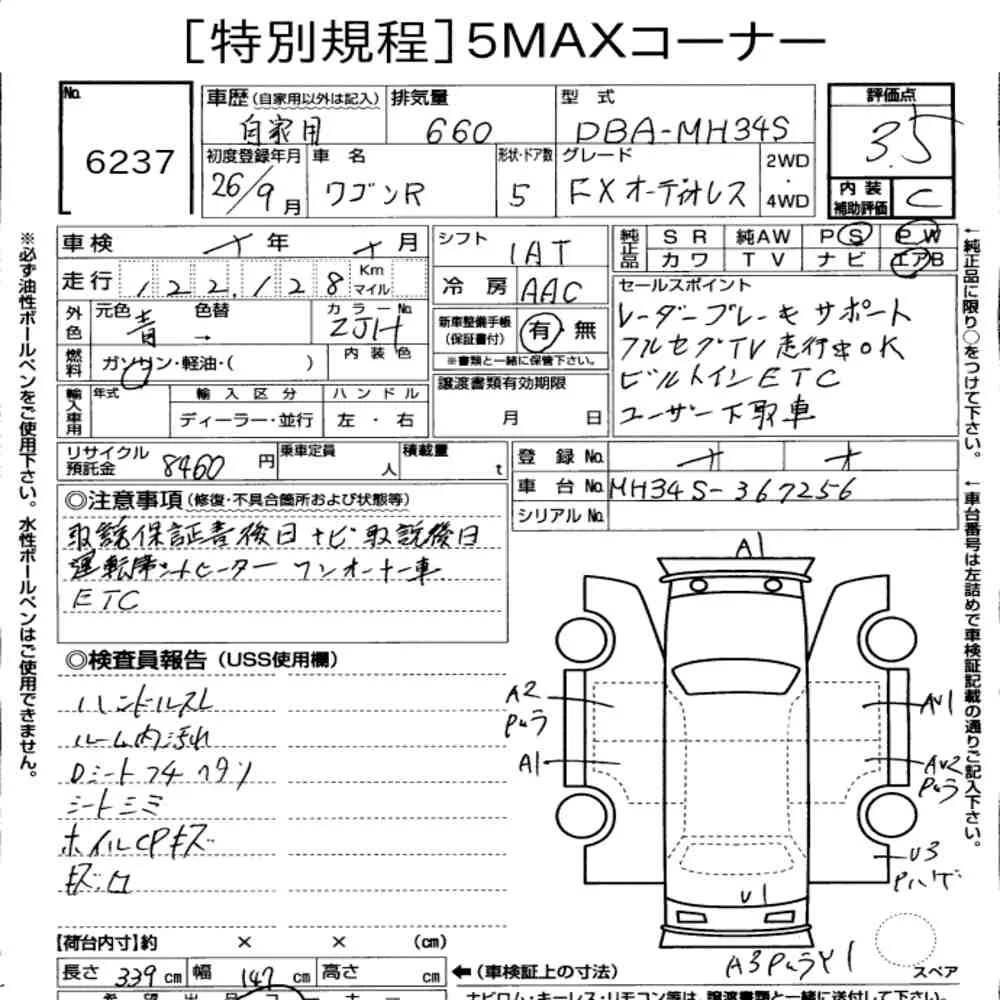 [特別規程]5MAXコーナー
No. 6237
車歴(自家用以外は記入) 自家用
排気量 660
型式 DBA-MH34S
評価点 3.5
初度登録年月 26/9月
車名 ワゴンR
形状・ドア数 5
グレード FXオーディオレス
2WD・4WD
内装補助評価 C
車検 年 月
シフト IAT
純正品 SR 純AW PS PW
カワ TV ナビ エアB
走行 122,128 Km マイル
冷房 AAC
セールスポイント
レーダーブレーキサポート
フルセグTV走行中OK
ビルトインETC
ユーザー下取車
外色 元色 青 色替 → カラーNo. ZJH
新車整備手帳(保証書付) 有・無
※書類と一緒に保管下さい。
燃料 ガソリン・軽油・( ) 内装色
譲渡書類有効期限
月 日
輸入車用 年式 輸入区分 ハンドル
ディーラー・並行 左・右
リサイクル預託金 8460円
乗車定員 人
積載量 t
登録No.
車台No. MH34S-367256
シリアルNo.
◎注意事項(修復・不具合箇所および状態等)
取説保証書後日 ナビ取説後日
運転席シートヒーター ワンオーナー車
ETC
◎検査員報告(USS使用欄)
ハンドルスレ
ルーム内汚れ
Dシートフチヘタリ
シートシミ
ホイルCPキズ
A1
A2
A1
AV1
AV2
U3
Pハゲ
U1
スペア
【荷台内寸】約 × × (cm)
長さ 339cm 幅 147cm 高さ cm
←(車検証上の寸法)
※必ず油性ボールペンをご使用下さい。水性ボールペンはご使用できません。
←純正品に限り○をつけて下さい。
←車台番号は左詰めで車検証記載の通りご記入下さい。